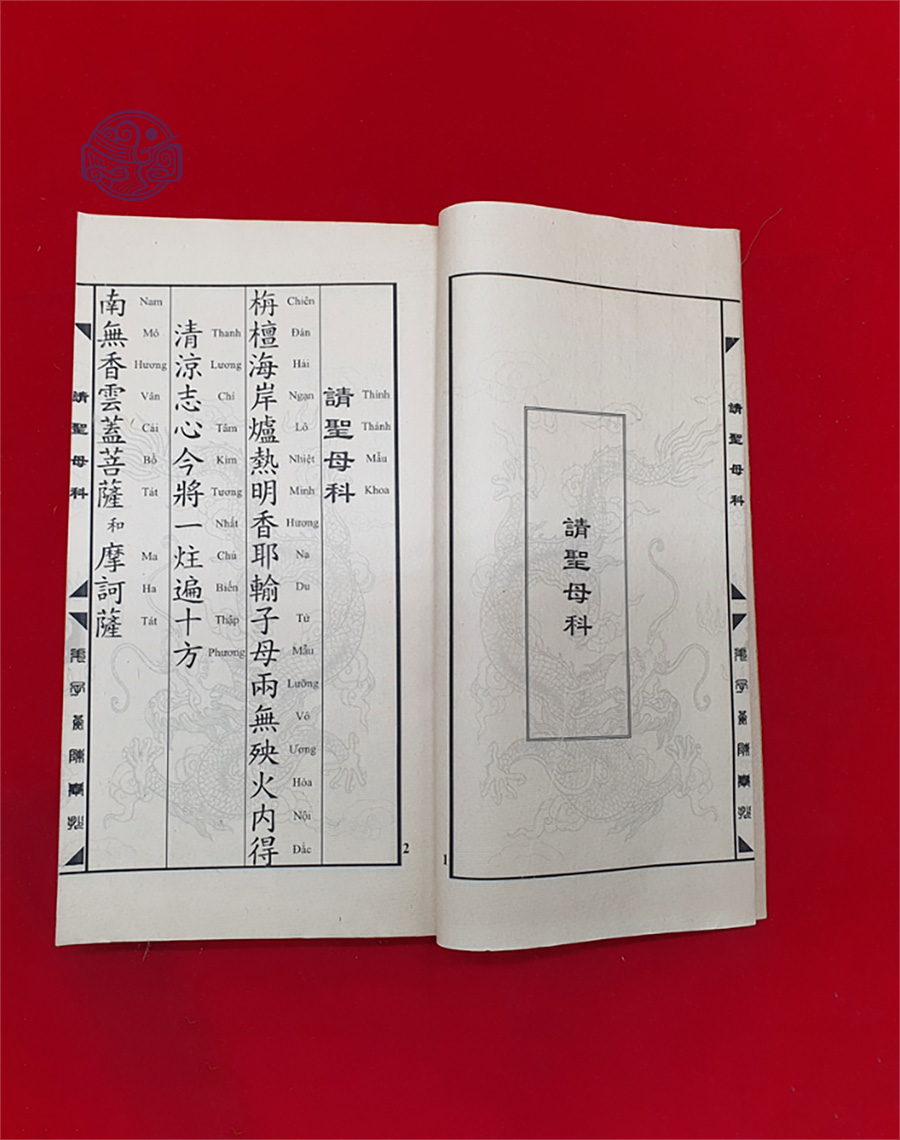 請聖母科
請聖母科
1
請聖母科
Thỉnh Thánh Mẫu Khoa
栴檀海岸爐熱明香耶輸子母兩無殃火内得
Chiên Đàn Hải Ngạn Lô Nhiệt Minh Hương Na Du Tử Mẫu Lưỡng Vô Ương Hỏa Nội Đắc
清涼志心今將一炷遍十方
Thanh Lương Chí Tâm Kim Tương Nhất Chú Biến Thập Phương
南無香雲蓋菩薩和摩訶薩
Nam Mô Hương Vân Cái Bồ Tát Ma Ha Tát
請聖母科
2